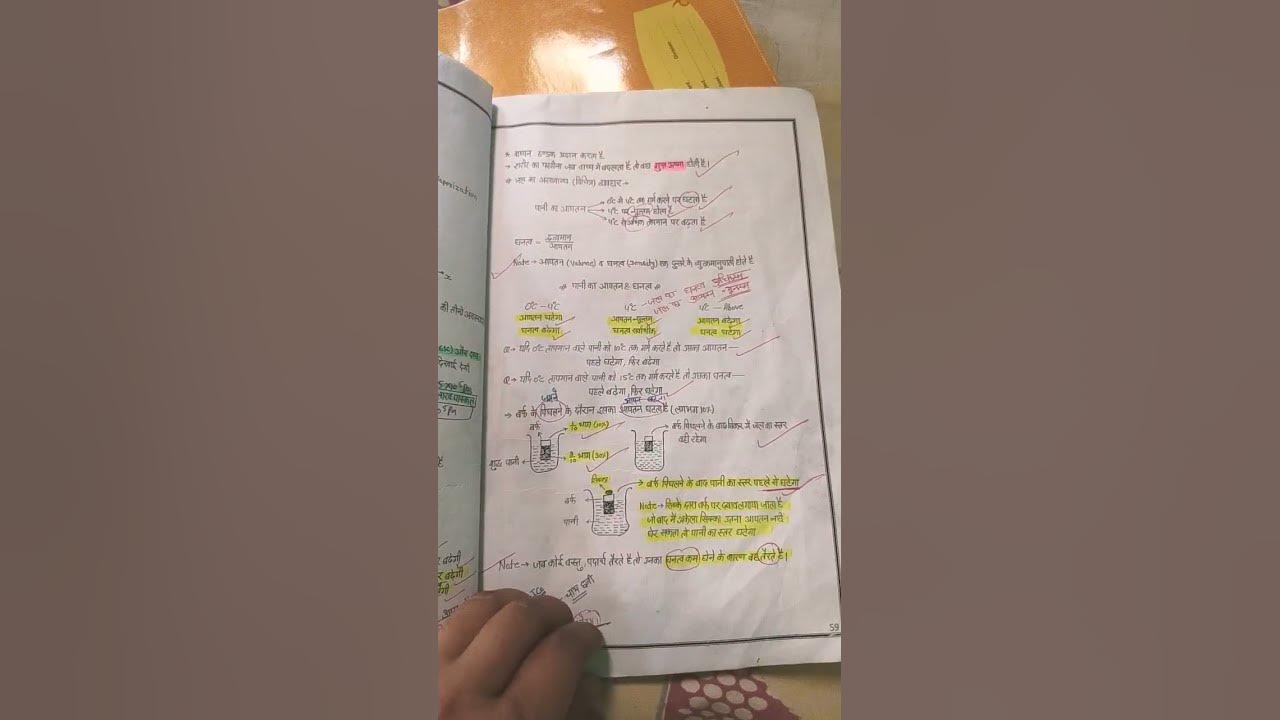 * वाष्पन ठण्डक प्रदान करता है
→ शरीर का पसीना जब वाष्प में बदलता है तो वह गुप्त ऊष्मा होती है।
* जल का असामान्य (विचित्र) व्यवहार →
→ 0℃ से 4℃ तक गर्म करने पर घटता है
पानी का आयतन → 4℃ पर न्यूनतम होता है
→ 4℃ से अधिक तापमान पर बढ़ता है
घनत्व = द्रव्यमान / आयतन
Note → आयतन (Volume) व घनत्व (density) एक दूसरे के व्युत्क्रमानुपाती होते है
* पानी का आयतन & घनत्व *
जल का घनत्व अधिकतम
जल का आयतन - न्यूनतम
0℃ – 4℃ 4℃ 4℃ – Above
आयतन घटेगा आयतन-न्यूनतम आयतन बढ़ेगा
घनत्व बढेगा घनत्व सर्वाधिक घनत्व घटेगा
Q → यदि 0℃ तापमान वाले पानी को 10℃ तक गर्म करते है तो उसका आयतन —
पहले घटेगा, फिर बढेगा
Q → यदि 0℃ तापमान वाले पानी को 15℃ तक गर्म करते है तो उसका घनत्व —
पहले बढेगा, फिर घटेगा
→ बर्फ के पिघलने के दौरान उसका आयतन घटता है (लगभग 10%)
बर्फ
1/10 भाग (10%)
→ बर्फ पिघलने के बाद बीकर में जल का स्तर
वही रहेगा
शुद्ध पानी
9/10 भाग (90%)
सिक्का
→ बर्फ पिघलने के बाद पानी का स्तर पहले से घटेगा
बर्फ
पानी
Note → सिक्के द्वारा बर्फ पर दबाव लगाया जाता है
जो बाद में अकेला सिक्का उतना आयतन नही
घेर सकता तो पानी का स्तर घटेगा
Note → जब कोई वस्तु, पदार्थ तैरते है तो उनका घनत्व कम होने के कारण वह तैरते है।
59